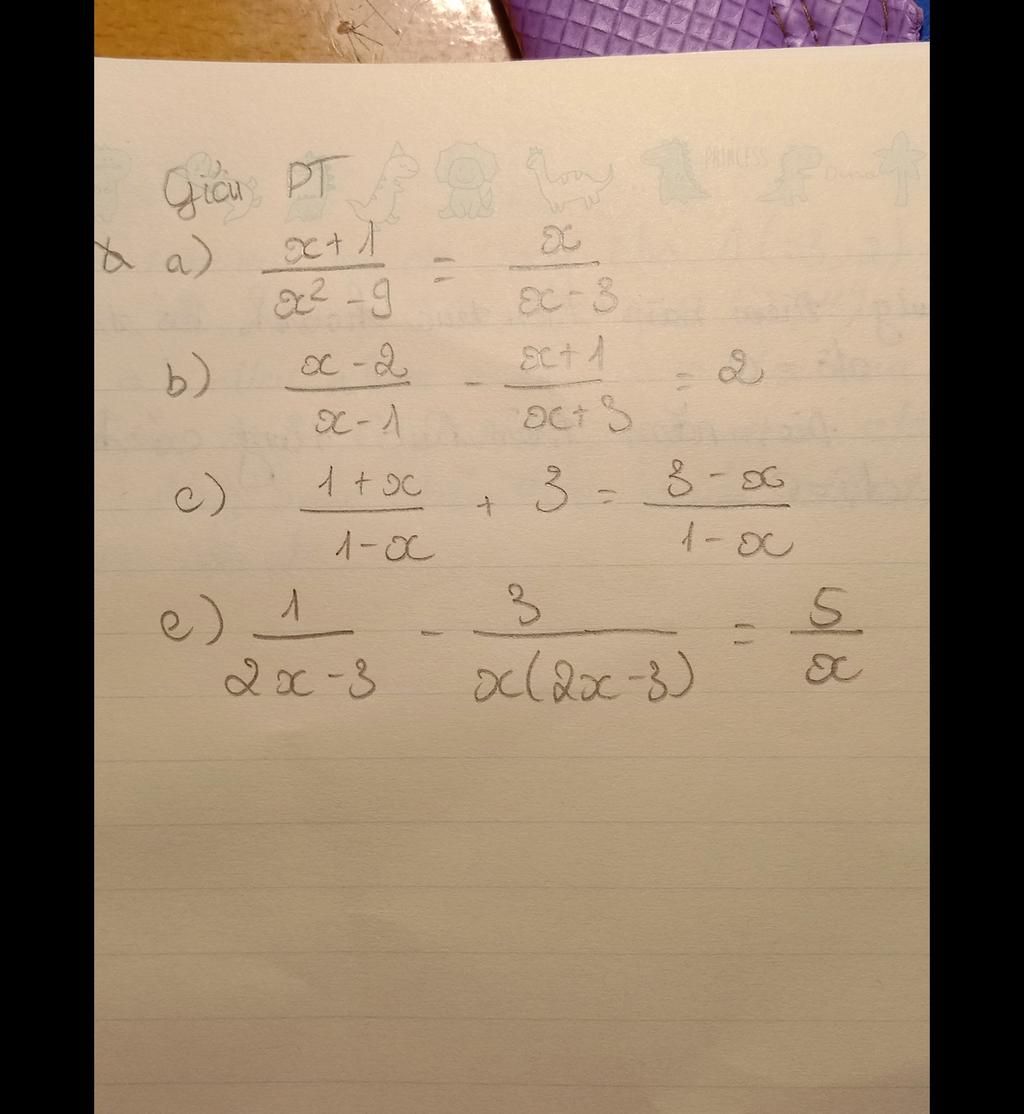 PRINCESS
Giải PT
a) \frac{x+1}{x^2-9} = \frac{x}{x-3}
b) \frac{x-2}{x-1} - \frac{x+1}{x+3} = 2
c) \frac{1+x}{1-x} + 3 = \frac{3-x}{1-x}
e) \frac{1}{2x-3} - \frac{3}{x(2x-3)} = \frac{5}{x}